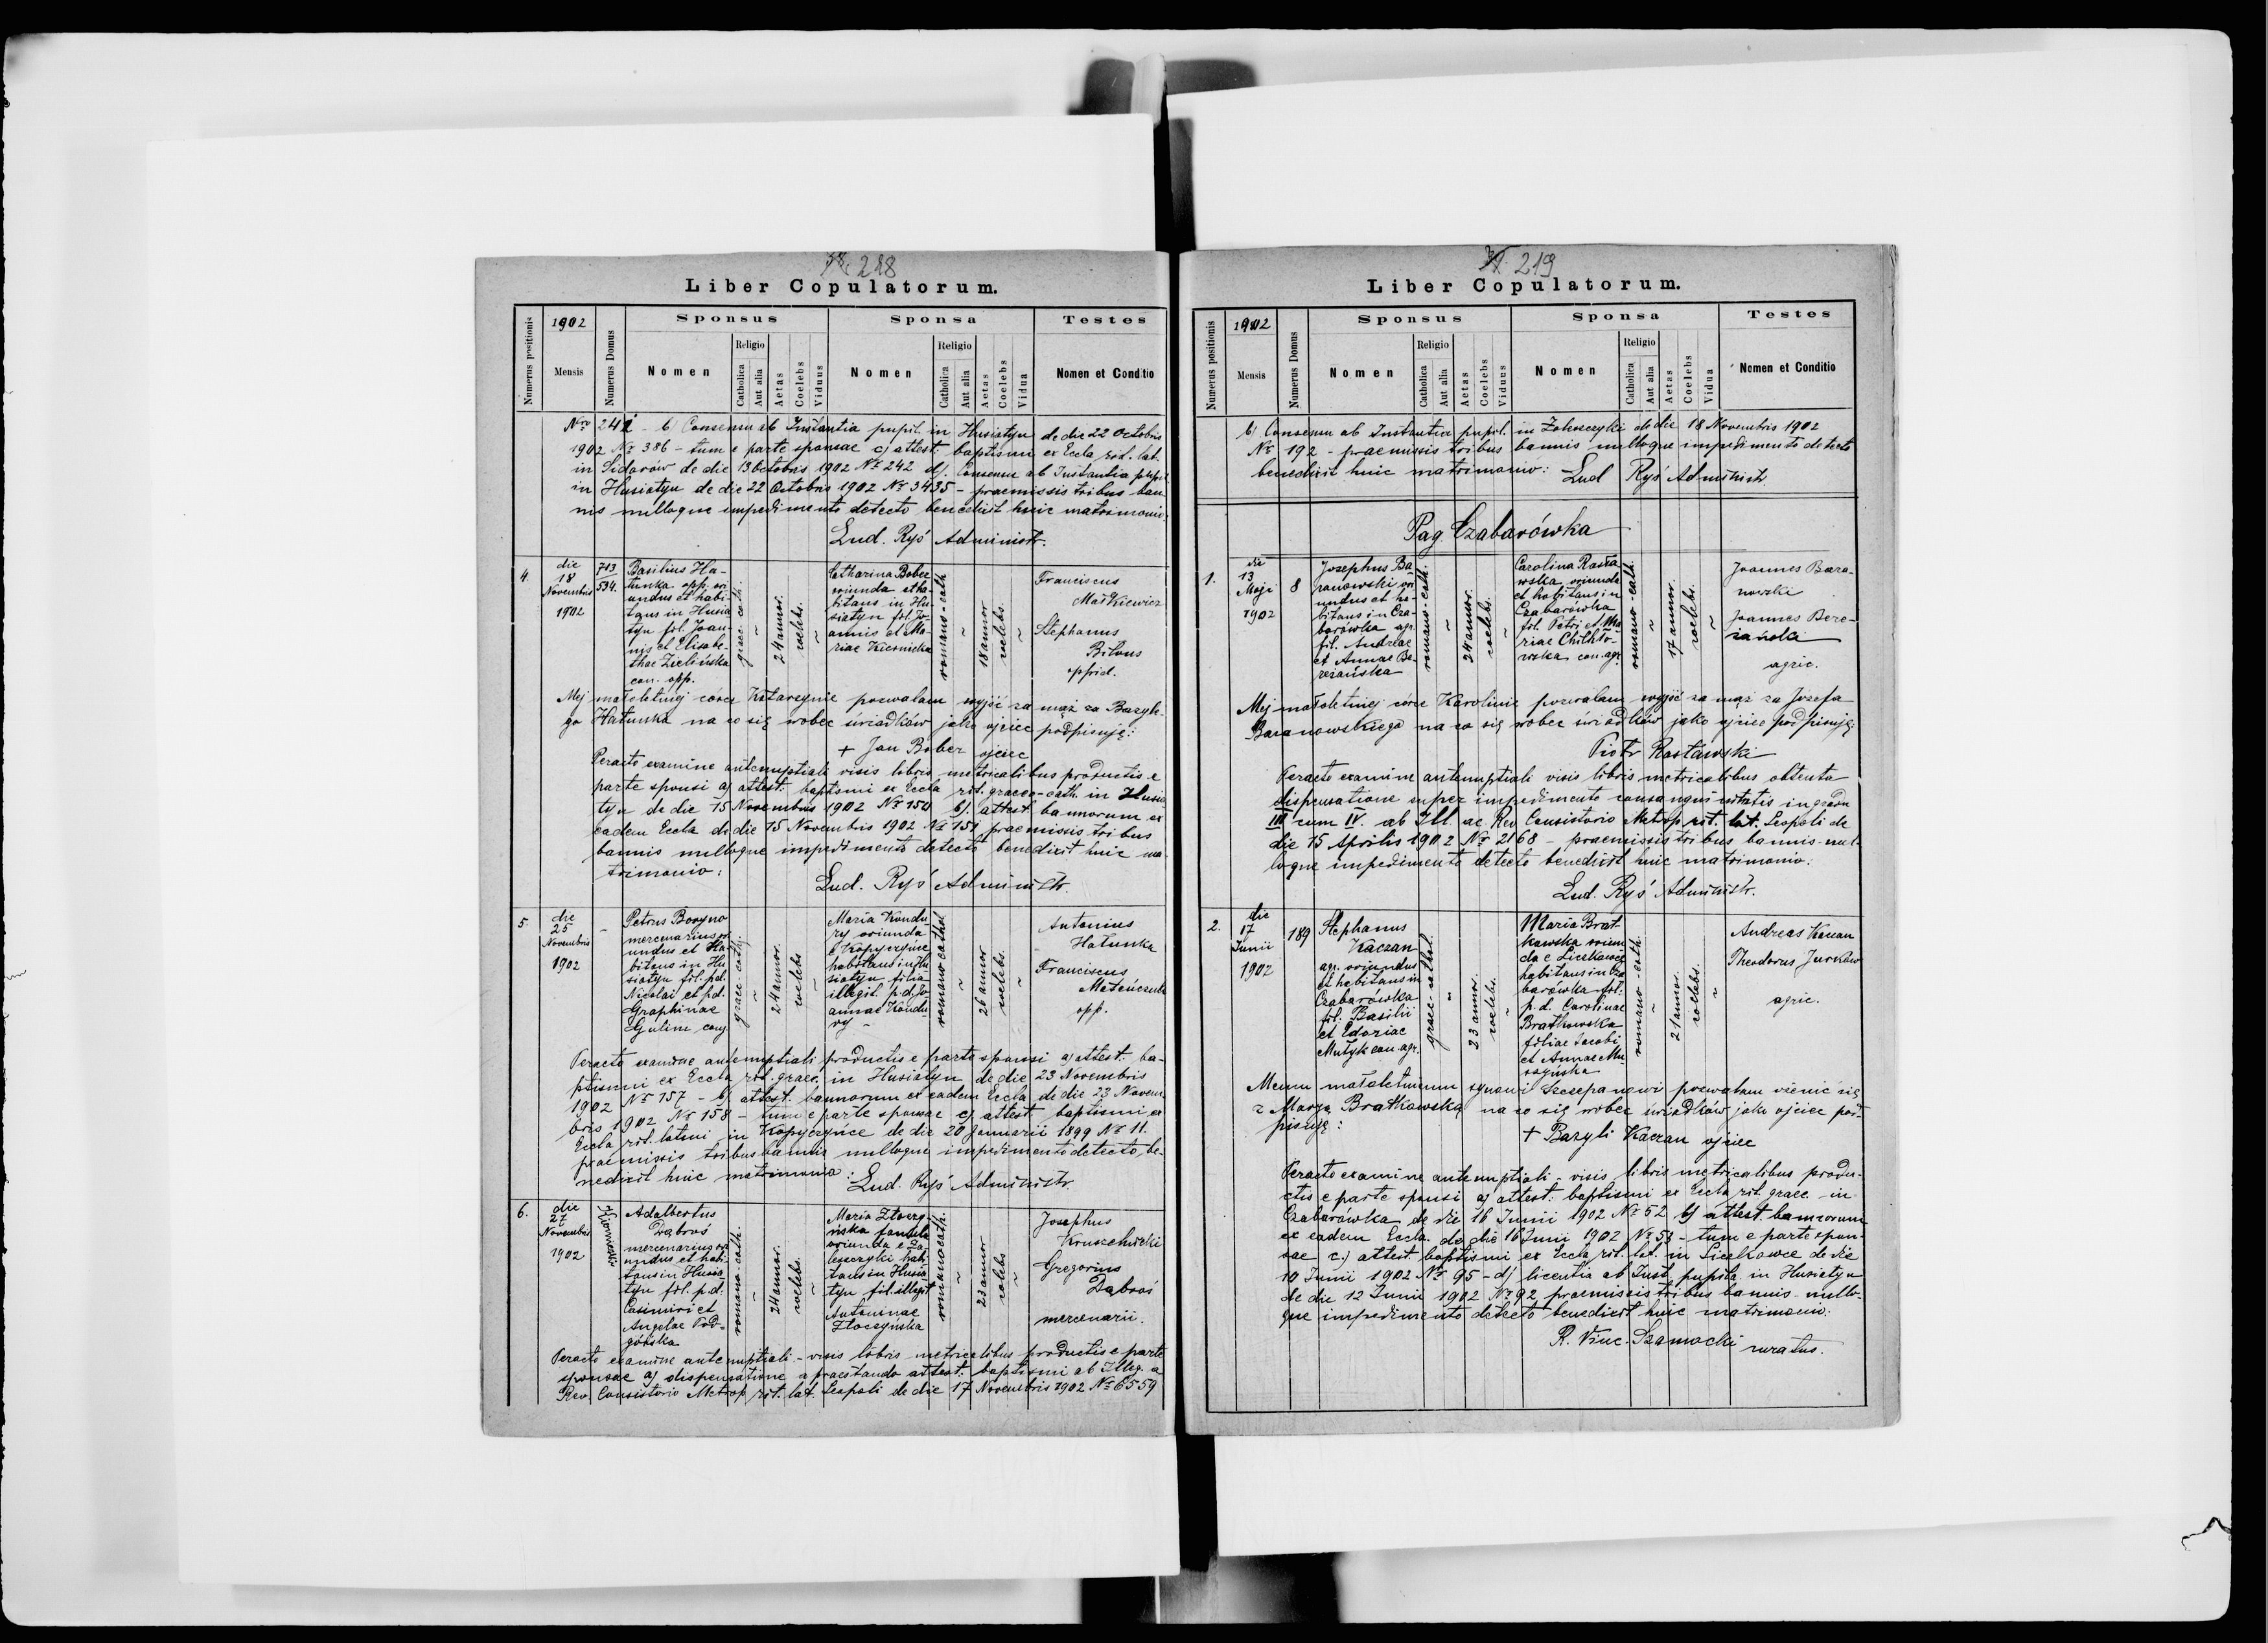 218
Liber Copulatorum.
Numerus positionis
1902
Mensis
Numerus Domus
Sponsus
Nomen
Religio
Catholica
Aut alia
Aetas
Coelebs
Viduus
Sponsa
Nomen
Religio
Catholica
Aut alia
Aetas
Coelebs
Vidua
Testes
Nomen et Conditio
b) Consensu ab Instantia pupil. in Husiatyn de die 22 Octobris
1902 Nº 386 - tum e parte sponsae c) attest. baptismi ex Eccla rit. lat.
in Sidorów de die 13 Octobris 1902 Nº 242 d). Consensu ab Instantia pupil.
in Husiatyn de die 22 Octobris 1902 Nº 3435 - praemissis tribus ban-
nis nulloque impedimento detecto benedixit huic matrimonio:
Lud. Ryś Administr.
4.
die
18
Novembris
1902
713
534.
Basilius Ha-
tunka opp. ori
undus et habi-
tans in Husia
tyn fil. Joan-
nis et Elisabe-
thae Zielińska
con. opp.
graec. cath.
~
24 annor.
coelebs.
~
Catharina Bober
oriunda et ha-
bitans in Hu-
siatyn fil. Jo-
annis et Ma-
riae
romano-cath
~
18 annor
coelebs.
~
Franciscus
Maśkiewicz
Stephanus
Bilous
oppid.
Mej małoletniej córce Katarzynie pozwalam wyjść za mąż za Bazyle-
go Hatunka na co się wobec świadków jako ojciec podpisuję:
+ Jan Bober ojciec
Peracto examine antenuptiali visis libris metricalibus productis e
parte sponsi a) attest. baptismi ex Eccla rit. graeco-cath. in Husia
tyn de die 15 Novembris 1902 Nº 150 b). attest. bannorum ex
eadem Eccla de die 15 Novembris 1902 Nº 151 praemissis tribus
bannis nulloque impedimento detecto benedixit huic ma-
trimonio:
Lud. Ryś Administr.
5
die
25
Novembris
1902
-
Petrus Boryno
mercenarius ori
undus et ha
bitans in Hu
siatyn fil. p.d.
Nicolai et p.d.
Graphinae
Gulin conj
graec. cath.
~
24 annor.
coelebs
~
Maria Kondu
ry oriunda
e Kopyczyńce
habitans in Hu
siatyn filia
illegit. p.d. Jo
annae Kondu
ry -
romano cathol
~
26 annor
coelebs.
~
Antonius
Hatunka
Franciscus
opp.
Peracto examine antenuptiali productis e parte sponsi a) attest. ba-
ptismi ex Eccla rit. graec. in Husiatyn de die 23 Novembris
1902 Nº 157 - b) attest. bannorum ex eadem Eccla de die 23 Novem
bris 1902 Nº 158 - tum e parte sponsae c) attest. baptismi ex
Eccla rit. latini in Kopyczyńce de die 20 Januarii 1899 Nº 11.
praemissis tribus bannis nulloque impedimento detecto be-
nedixit huic matrimonio: Lud. Ryś Administr.
6.
die
27
Novembris
1902
Adalbertus
Dąbroś
mercenarius ori
undus et habi-
tans in Husia
tyn fil. p.d.
Casimiri et
Angelae Pod-
górska
romano-cath.
~
24 annor.
coelebs.
~
Maria
famula
oriunda e Za
leszczyki habi
tans in Husia
tyn fil. illegit
Antoninae
romano cath.
~
23 annor
coelebs
~
Josephus
Gregorius
Dąbroś
mercenarii.
Peracto examine antenuptiali - visis libris metricalibus productis e parte
sponsae a) dispensatione a praestando attest. baptismi ab Illu. a
Rev. Consistorio Metrop. rit. lat. Leopoli de die 17 Novembris 1902 Nº 6559
219
Liber Copulatorum.
Numerus positionis
1902
Mensis
Numerus Domus
Sponsus
Nomen
Religio
Catholica
Aut alia
Aetas
Coelebs
Viduus
Sponsa
Nomen
Religio
Catholica
Aut alia
Aetas
Coelebs
Vidua
Testes
Nomen et Conditio
b) Consensu ab Instantia pupil. in de die 18 Novembris 1902
Nº 192 - praemissis tribus bannis nulloque impedimento detecto
benedixit huic matrimonio: Lud Ryś Administr.
Pag. Czabarówka
1.
die
13
Maji
1902
8
Josephus Ba
ranowski ori
undus et ha-
bitans in Cza-
barówka agr.
fil. Andreae
et Annae Be-
reżańska
romano-cath.
~
24 annor.
coelebs.
~
Carolina Rasła
wska oriunda
et habitans in
Czabarówka
fil. Petri et Ma
riae
con. agr.
romano-cath.
~
17 annor.
coelebs.
~
Joannes Bara-
nowski
Joannes Bere-
żański
agric.
Mej małoletniej córce Karolinie pozwalam wyjść za mąż za Józefa
Baranowskiego na co się wobec świadków jako ojciec podpisuję:
Piotr Rasławski
Peracto examine antenuptiali visis libris metricalibus obtenta
dispensatione super impedimento consanguinitatis in gradu
III cum IV. ab Ill. ac Rev. Consistorio Metrop. rit. lat. Leopoli de
die 15 Aprilis 1902 Nº 2168 - praemissis tribus bannis nul-
loque impedimento detecto benedixit huic matrimonio:
Lud. Ryś Administr.
2.
die
17
Junii
1902
189
Stephanus
Kaczan
agr. oriundus
et habitans in
Czabarówka
fil. Basilii
et
con. agr.
graec-cathol.
~
23 annor.
coelebs.
~
Maria Brat
kowska oriun
da e Liczkowce
habitans in Cza
barówka fil:
p.d. Carolinae
Bratkowska
filiae Jacobi
et Annae Mu-
szyńska
romano-cath.
~
21 annor.
coelebs.
~
Andreas Kaczan
Theodorus Jurków
agric.
Memu małoletniemu synowi Szczepanowi pozwalam ożenić się
z Maryą Bratkowską na co się wobec świadków jako ojciec pod-
pisuję:
+ Bazyli Kaczan ojciec
Peracto examine antenuptiali - visis libris metricalibus produ-
ctis e parte sponsi a) attest: baptismi ex Eccla rit. graec. in
Czabarówka de die 16 Junii 1902 Nº 52 b) attest. bannorum
ex eadem Eccla de die 16 Junii 1902 Nº 53 - tum e parte spon-
sae c.) attest baptismi ex Eccla rit. lat. in Liczkowce de die
10 Junii 1902 Nº 95 - d) licentia ab Inst. pupila. in Husiatyn
de die 12 Junii 1902 Nº 92 praemissis tribus bannis nullo-
que impedimento detecto benedixit huic matrimonio:
R. Vinc. Szamocki curatus.